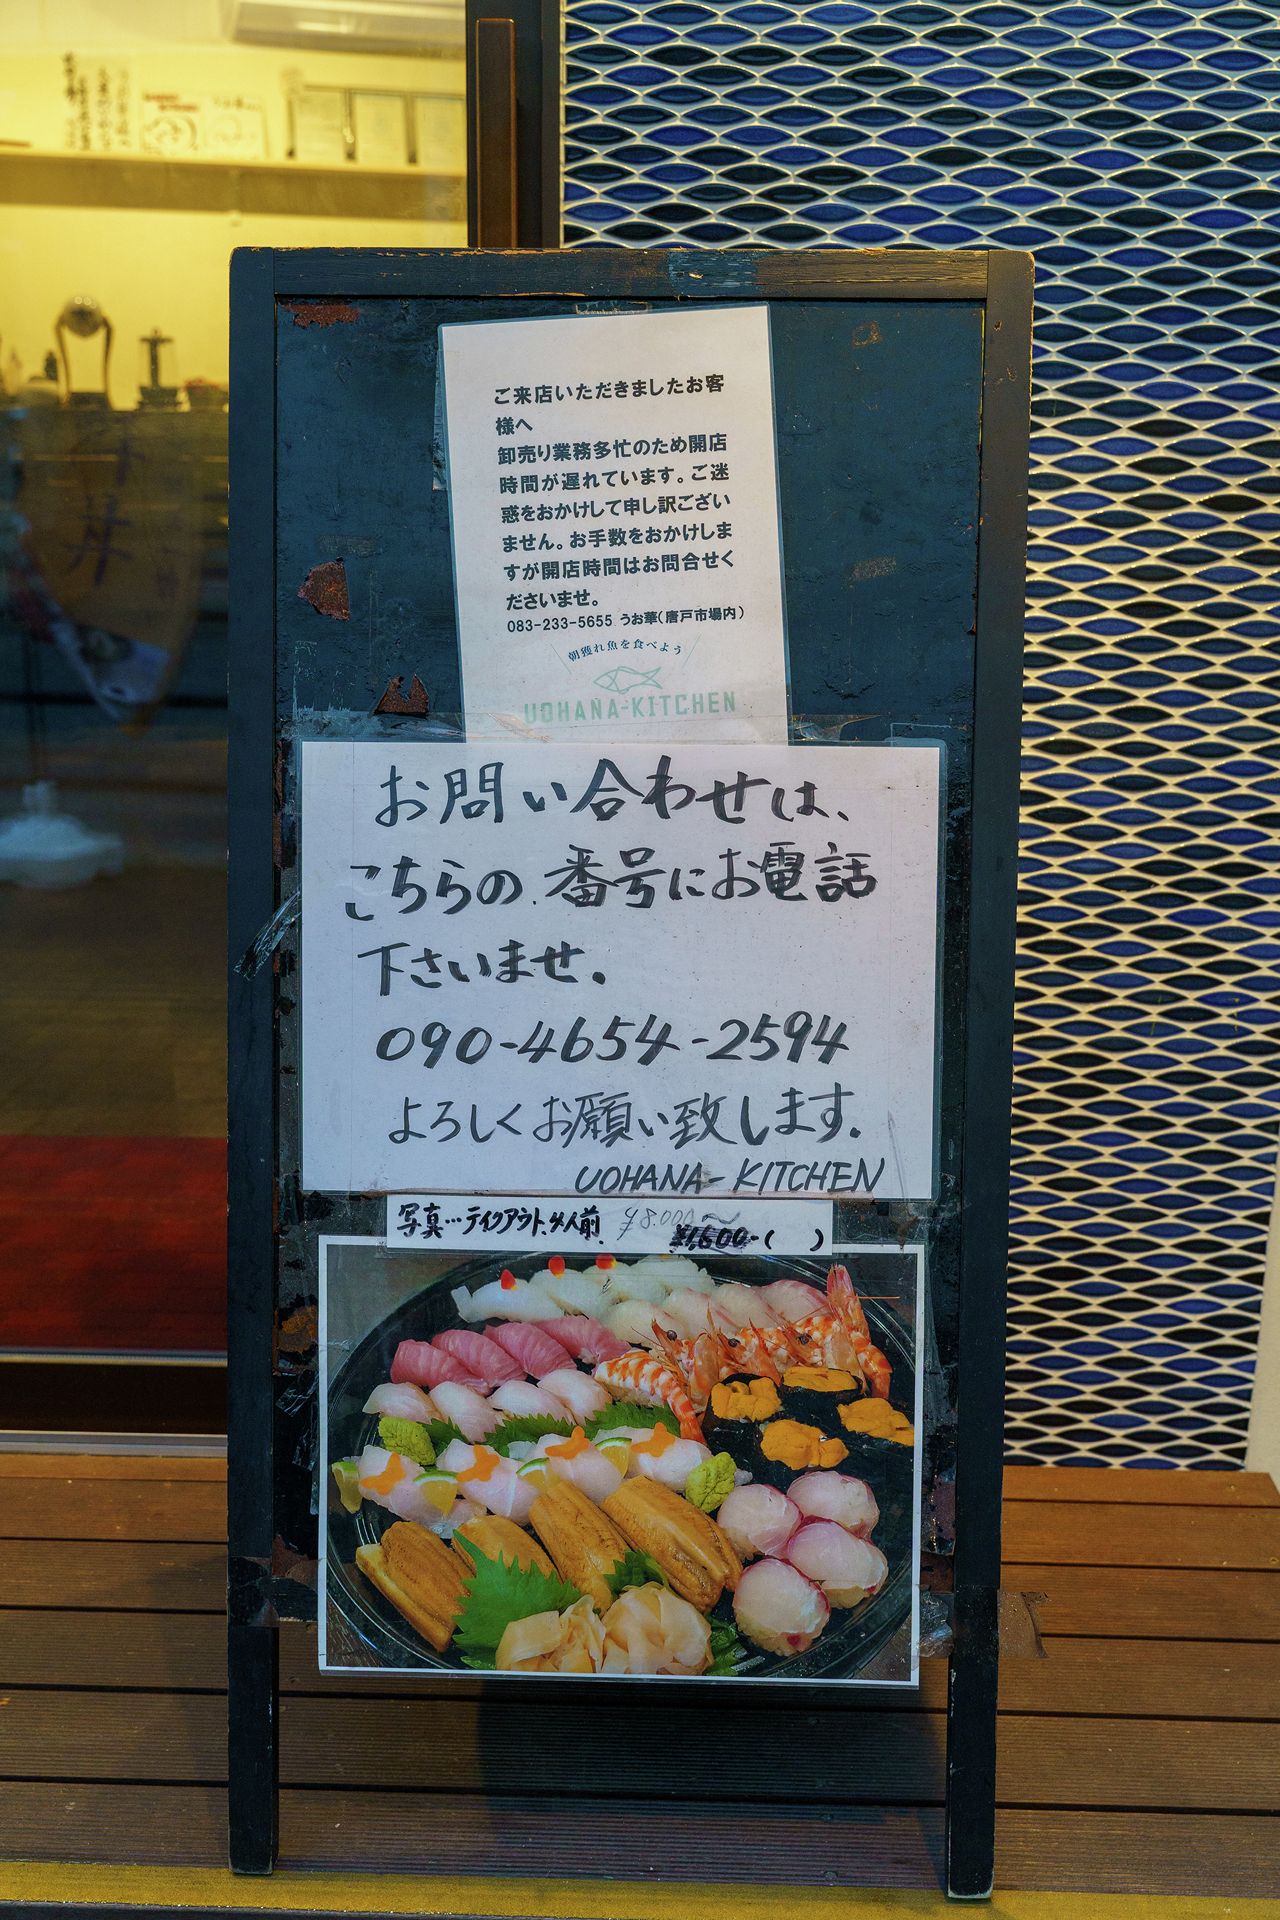 ご来店いただきましたお客
様へ
卸売り業務多忙のため開店
時間が遅れています。ご迷
惑をおかけして申し訳ござい
ません。お手数をおかけしま
すが開店時間はお問合せく
ださいませ。
083-233-5655 うお華(唐戸市場内)
朝獲れ魚を食べよう
UOHANA-KITCHEN
お問い合わせは、
こちらの番号にお電話
下さいませ。
090-4654-2594
よろしくお願い致します。
UOHANA-KITCHEN
写真…テイクアウト、4人前 ¥8.000~
¥1,600-( )